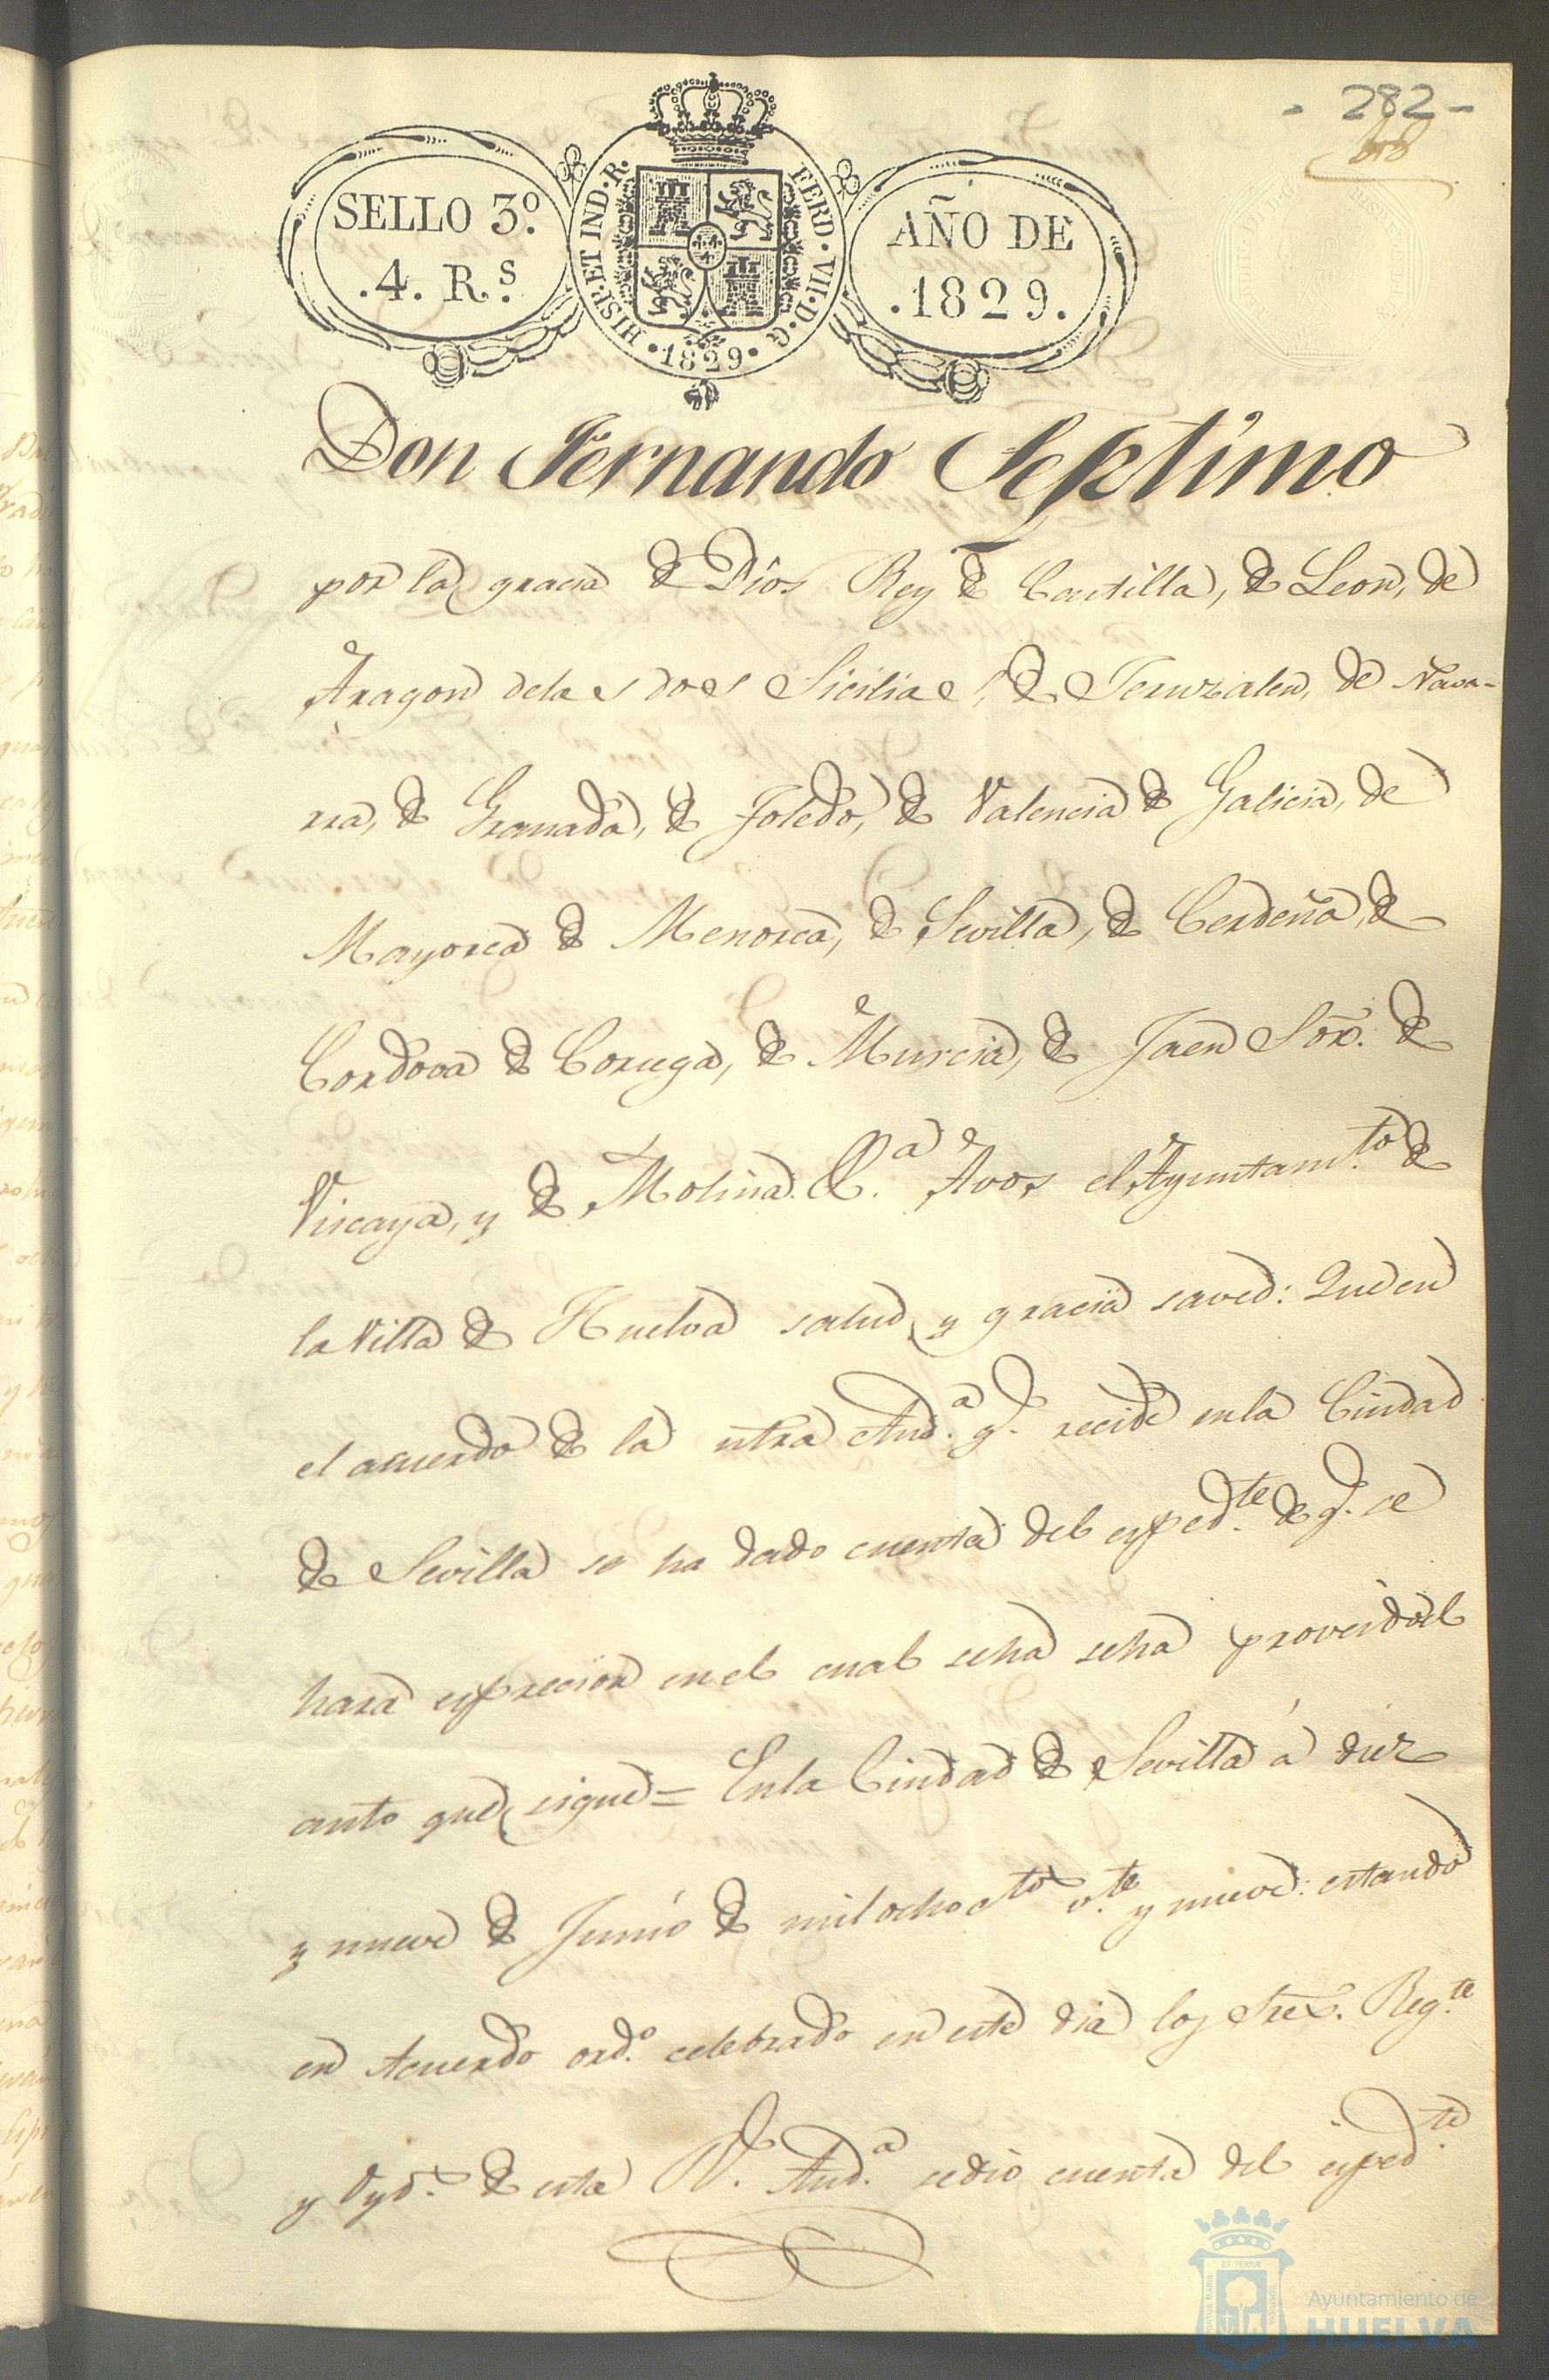 - 282 -
SELLO 3º.
.4. R.s
HISP. ET IND. R. FERD. VII. D. G.
• 1829 •
AÑO DE
.1829.
Don Fernando Septimo
por la gracia de Dios Rey de Castilla, de Leon, de
Aragon dela s dos Sicilias, de Jeruzalen, de Nava-
rra, de Granada, de Toledo, de Valencia de Galicia, de
Mayorca de Menorca, de Sevilla, de Cerdeña, de
Cordova de Corcega, de Murcia, de Jaen Sor. de
Viscaya, y de Molina. &.a Avos el Ayuntam.to de
la Villa de Huelva salud y gracia saved: Que en
el acuerdo de la ntra Aud.a q. recide enla Ciudad
de Sevilla se ha dado cuenta del exped.te de q. se
hara exprecion en el cual seha seha proveido el
auto que sigue = Enla Ciudad de Sevilla á diez
y nueve de Junio de mil ochoctos v.te y nueve: estando
en Acuerdo ord.o celebrado en este dia los Sres. Reg.te
y Oyd.s de esta Rl. Aud.a sedio cuenta del exped.te
Ayuntamiento de
HUELVA